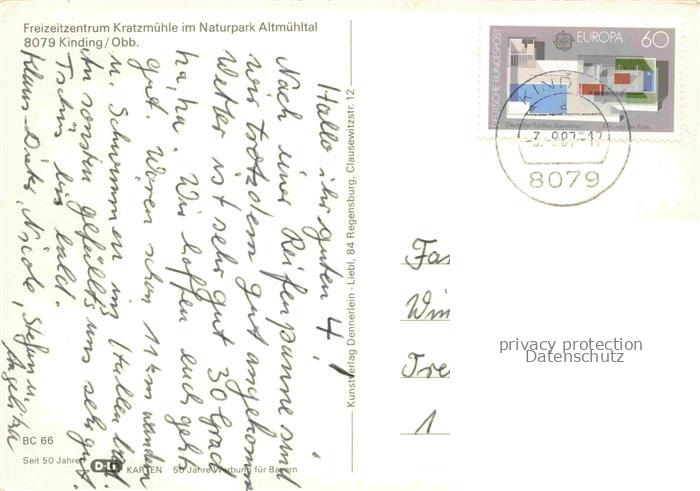 Freizeitzentrum Kratzmühle im Naturpark Altmühltal
8079 Kinding/Obb.
Hallo ihr guten 4!
Nach einer Reifenpanne sind
wir trotzdem gut angekommen
Wetter ist sehr gut 30 Grad
ha, ha. Wir hoffen euch gehts
gut. Waren schon 11 km wandern
u. Schwimmen im Hallenbad.
An sonsten gefällts uns sehr gut.
Tschüs bis bald.
Klaus-Dieter, Nicole, Stefan u.
BC 66
Seit 50 Jahren
KARTEN 50 Jahre Werbung für Bayern
Kunstverlag Dennerlein - Liebl, 84 Regensburg, Clausewitzstr. 12
DEUTSCHE BUNDESPOST
EUROPA 60
Deutscher Pavillon Barcelona
KINDI
-3.-9.87-17
8079
Fa
Win
Tre
1
privacy protection
Datenschutz